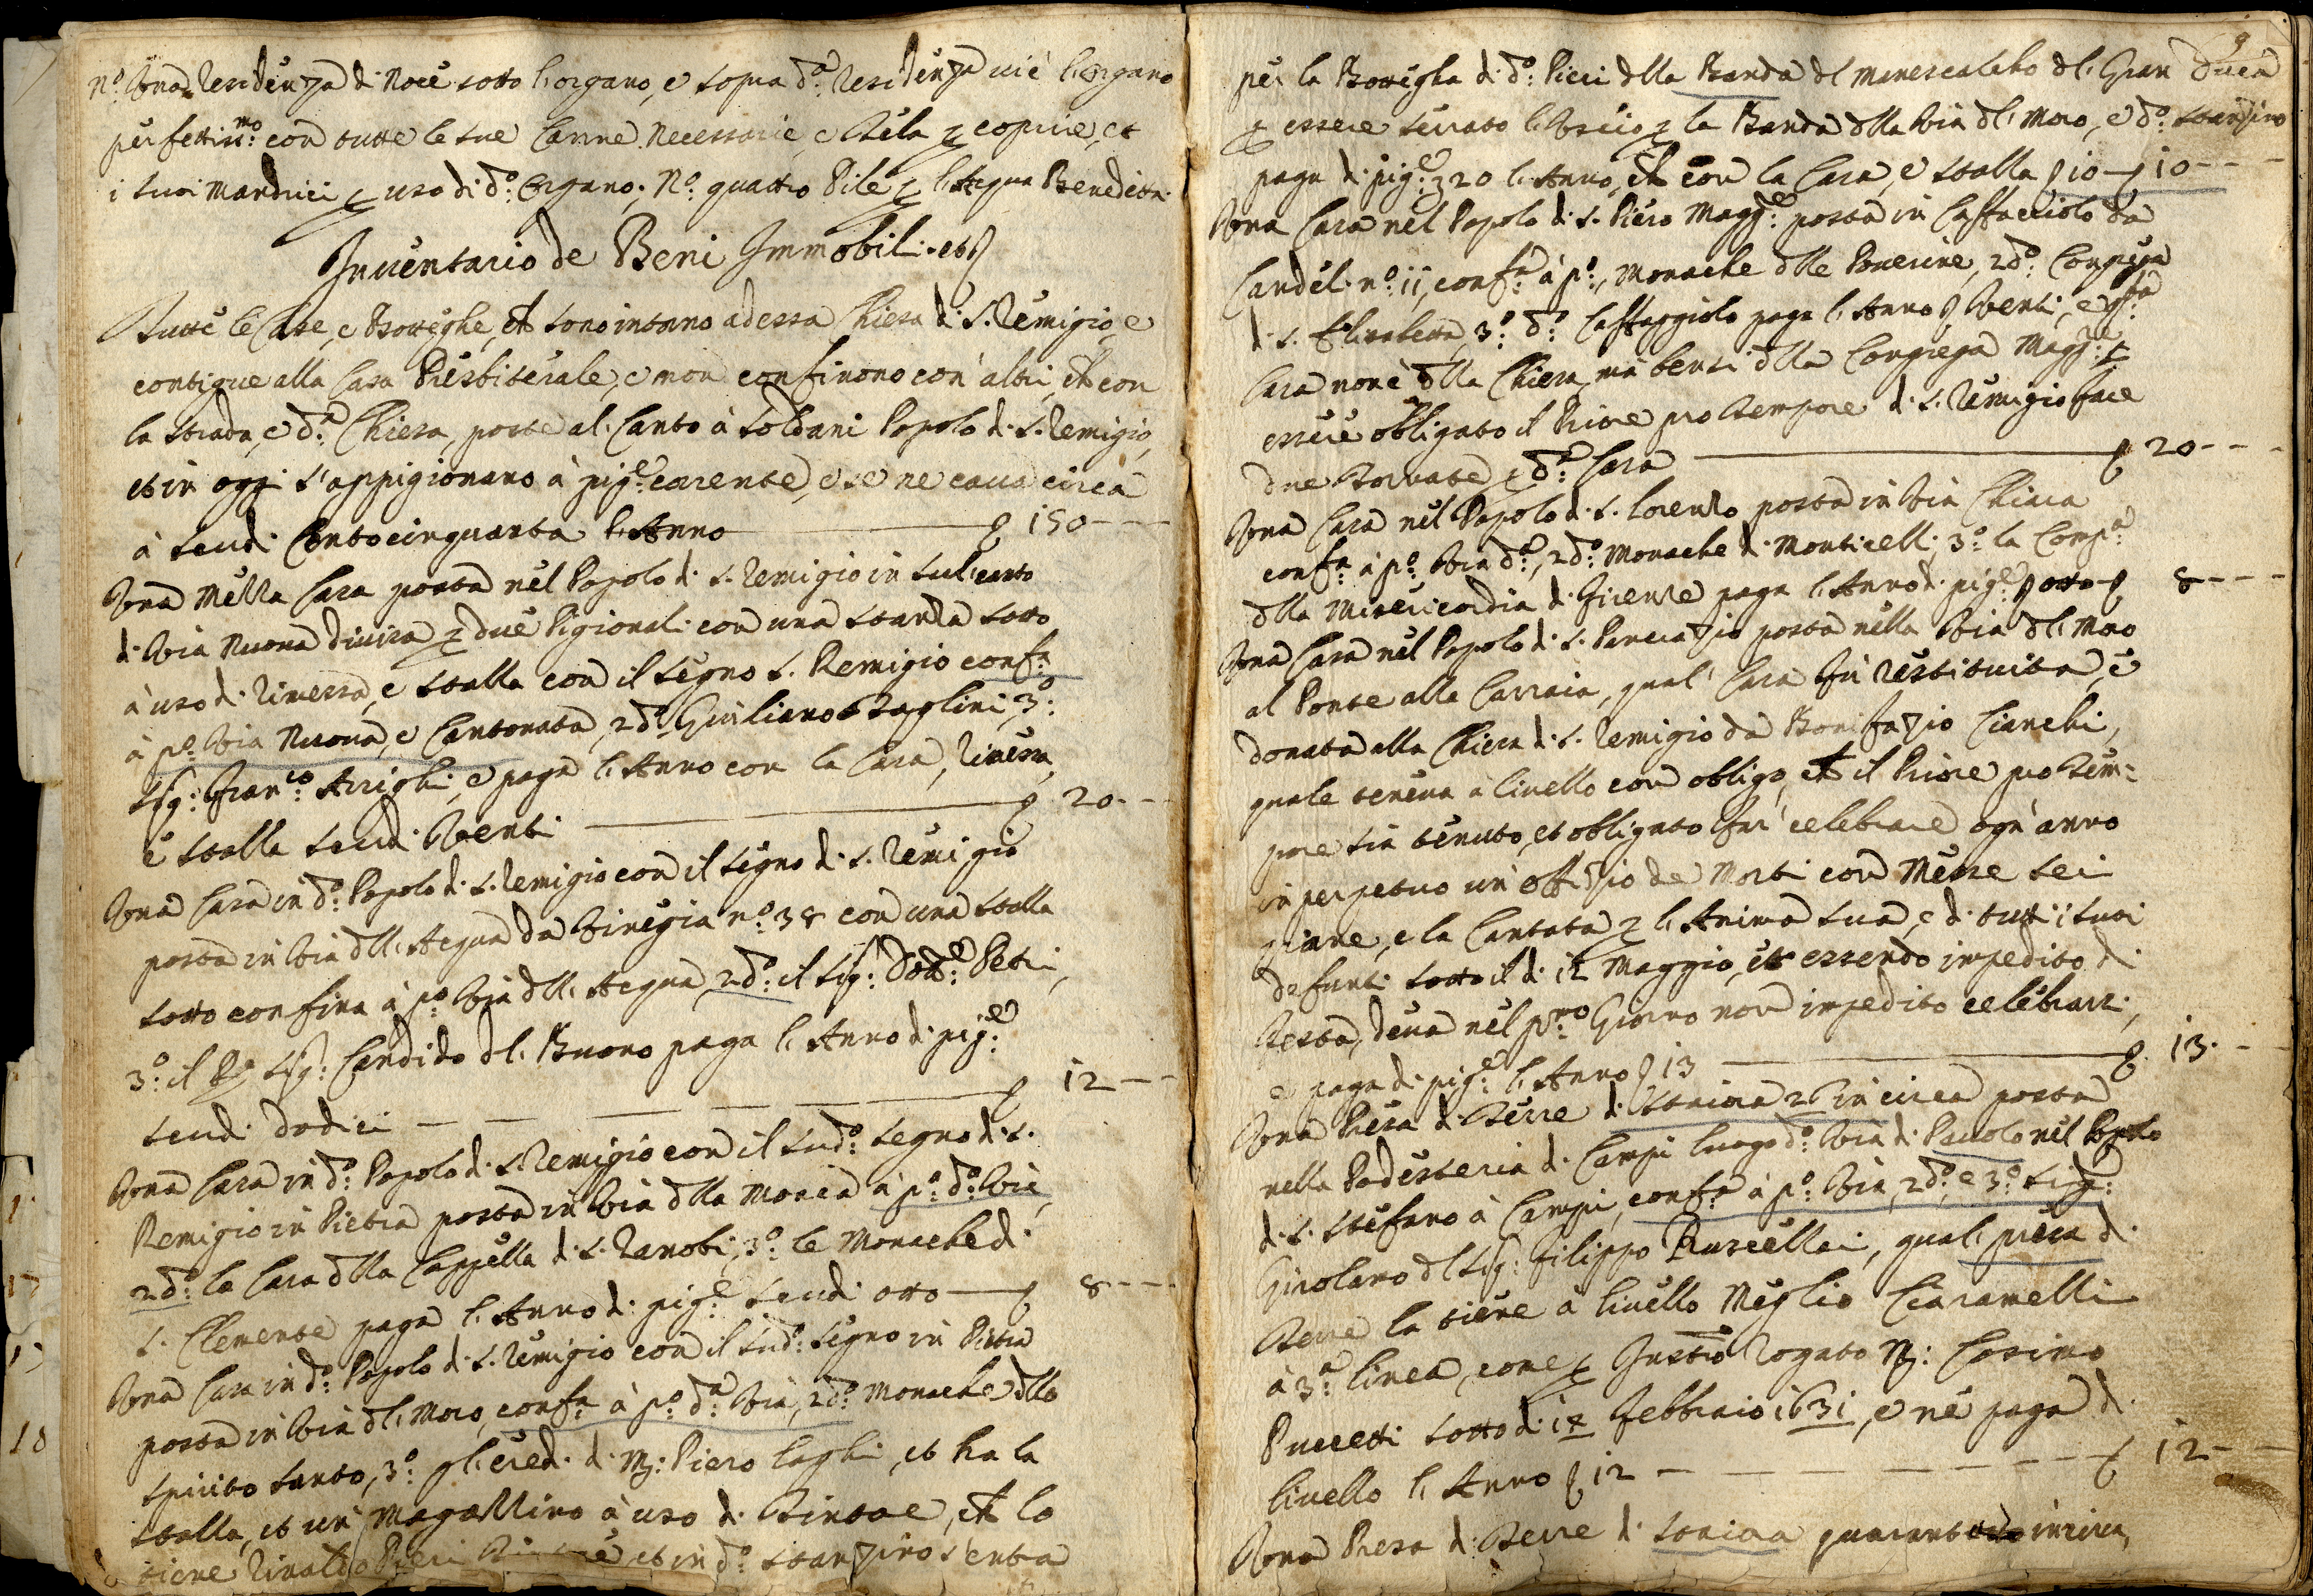 N.º Una Residenza di Noce sotto l'organo, e sopra d.ª Residenza vi è l'organo
perfettiss.mo con tutte le sue Canne Necessarie, e Tela p coprire, et
i suoi Mandrici p uso di d.º Organo. N.º quattro Pile p l'Acqua Benedetta.
Inventario de Beni Immobili. et
Tutte le Case, e Botteghe, ch sono intorno ad essa Chiesa di S. Remigio, e
contigue alla Casa Presbiterale, e non confinono con altri, ch con
la strada, e d.ª Chiesa, poste al Canto à Soldani Popolo di S. Remigio,
et in oggi s'appigionano à pig.e corente, e se ne cava circa
à scudi Centocinquanta l'Anno 150
Una Mezza Casa posta nel Popolo di S. Remigio in sul canto
di Via Nuova divisa p due Pigionali con una stanza sotto
à uso di Rimessa, e stalla con il segno S. Remigio conf.a
à p.º Via Nuova, e Cantonata, 2d.º Giuliano Baglini 3.º
Sig: Fran.co Arrighi, e paga l'Anno con la Casa, Rimessa,
e stalla scudi Venti 20
Una Casa in d.º Popolo di S. Remigio con il segno di S. Remigio
posta in Via dll'Acqua da Vinegia n.º 38 con una stalla
sotto confina à p.º Via dll'Acqua, 2d.º il Sig: Dott.e Petri,
3.º il Sig: Candido dl Buono paga l'Anno di pig.e
scudi dodici 12
Una Casa in d.º Popolo di S. Remigio con il sud.º segno di S.
Remigio in Pietra posta in Via dlla Mosca à p.º d.ª Via,
2d.º la Casa dlla Cappella di S. Zanobi, 3.º le Monache di
S. Clemente paga l'Anno di pig.e scudi otto 8
Una Casa in d.º Popolo di S. Remigio con il sud.º segno in Pietra
posta in Via dl Moro, conf.a à p.º d.ª Via, 2d.º Monache dllo
Spirito Santo, 3.º gl'eredi di M: Piero Laghi, et ha la
stalla, et un Magazzino à uso di Tintore, ch lo
tiene Rinaldo Pieri Tintore et in d.º stanzino s'entra
9
per la Bottegha di d.º Pieri dlla Banda dl Manescalcho dl Gran Duca
p essere serrato l'Uscio p la Banda dlla Via dl Moro, e d.º stanzino
paga di pig.e 20 l'Anno, ch con la Casa, e stalla 10 10
Una Casa nel Popolo di S. Piero Magg.e posta in Caffaciolo da
Candeli n.º 11, conf.a à p.º, Monache dlle Poverine, 2d.º Congrega
di S. Elisabetta, 3.º d.º Caffaggiolo paga l'Anno Venti, e
Casa non è dlla Chiesa, ma bensi dlla Congrega Magg.e p
essere obligato il Priore pro tempore di S. Remigio fare
due Tornate p d.ª Casa 20
Una Casa nel Popolo di S. Lorenzo posta in Via Chiara
conf.a à p.º Via d.ª, 2d.º Monache di Monticelli, 3.º la Comp.a
dlla Misericordia di Firenze paga l'Anno di pig.e otto 8
Una Casa nel Popolo di S. Pancrazio posta nella Via dl Moro
al Ponte alla Carraia, qual' Casa fù restituita, e
donata alla Chiesa di S. Remigio da Bonifazio Cianchi,
quale teneva a livello con obligo, ch il Priore pro tem=
pore sia tenuto, et obligato far' celebrare ogn'anno
in perpetuo un' offizio de Morti con Messe sei
piane, e la Cantata p l'Anima sua, e di tutti i suoi
defunti sotto il dì 12 Maggio, et essendo impedito di
Testa, deva nel p.mo Giorno non impedito celebrarsi,
e paga di pig.e l'Anno 13 13
Una Presa di Terre di staiora 26 in circa posta
nella Podesteria di Campi luogo d.º Via di Paiolo nel Popolo
di S. Stefano à Campi, conf.a à p.º Via, 2d.º, e 3.º Sig:
Girolamo dl Sig: Filippo Rucellai, qual' presa di
Terre la tiene à livello Meglio Ciaramelli
à 3.ª linea, come p Instr.º Rogato M: Cosimo
Puccetti sotto dì 17 Febbraio 1631, e ne paga di
livello l'Anno 12 12
Una Presa di Terre di staiora in circa,